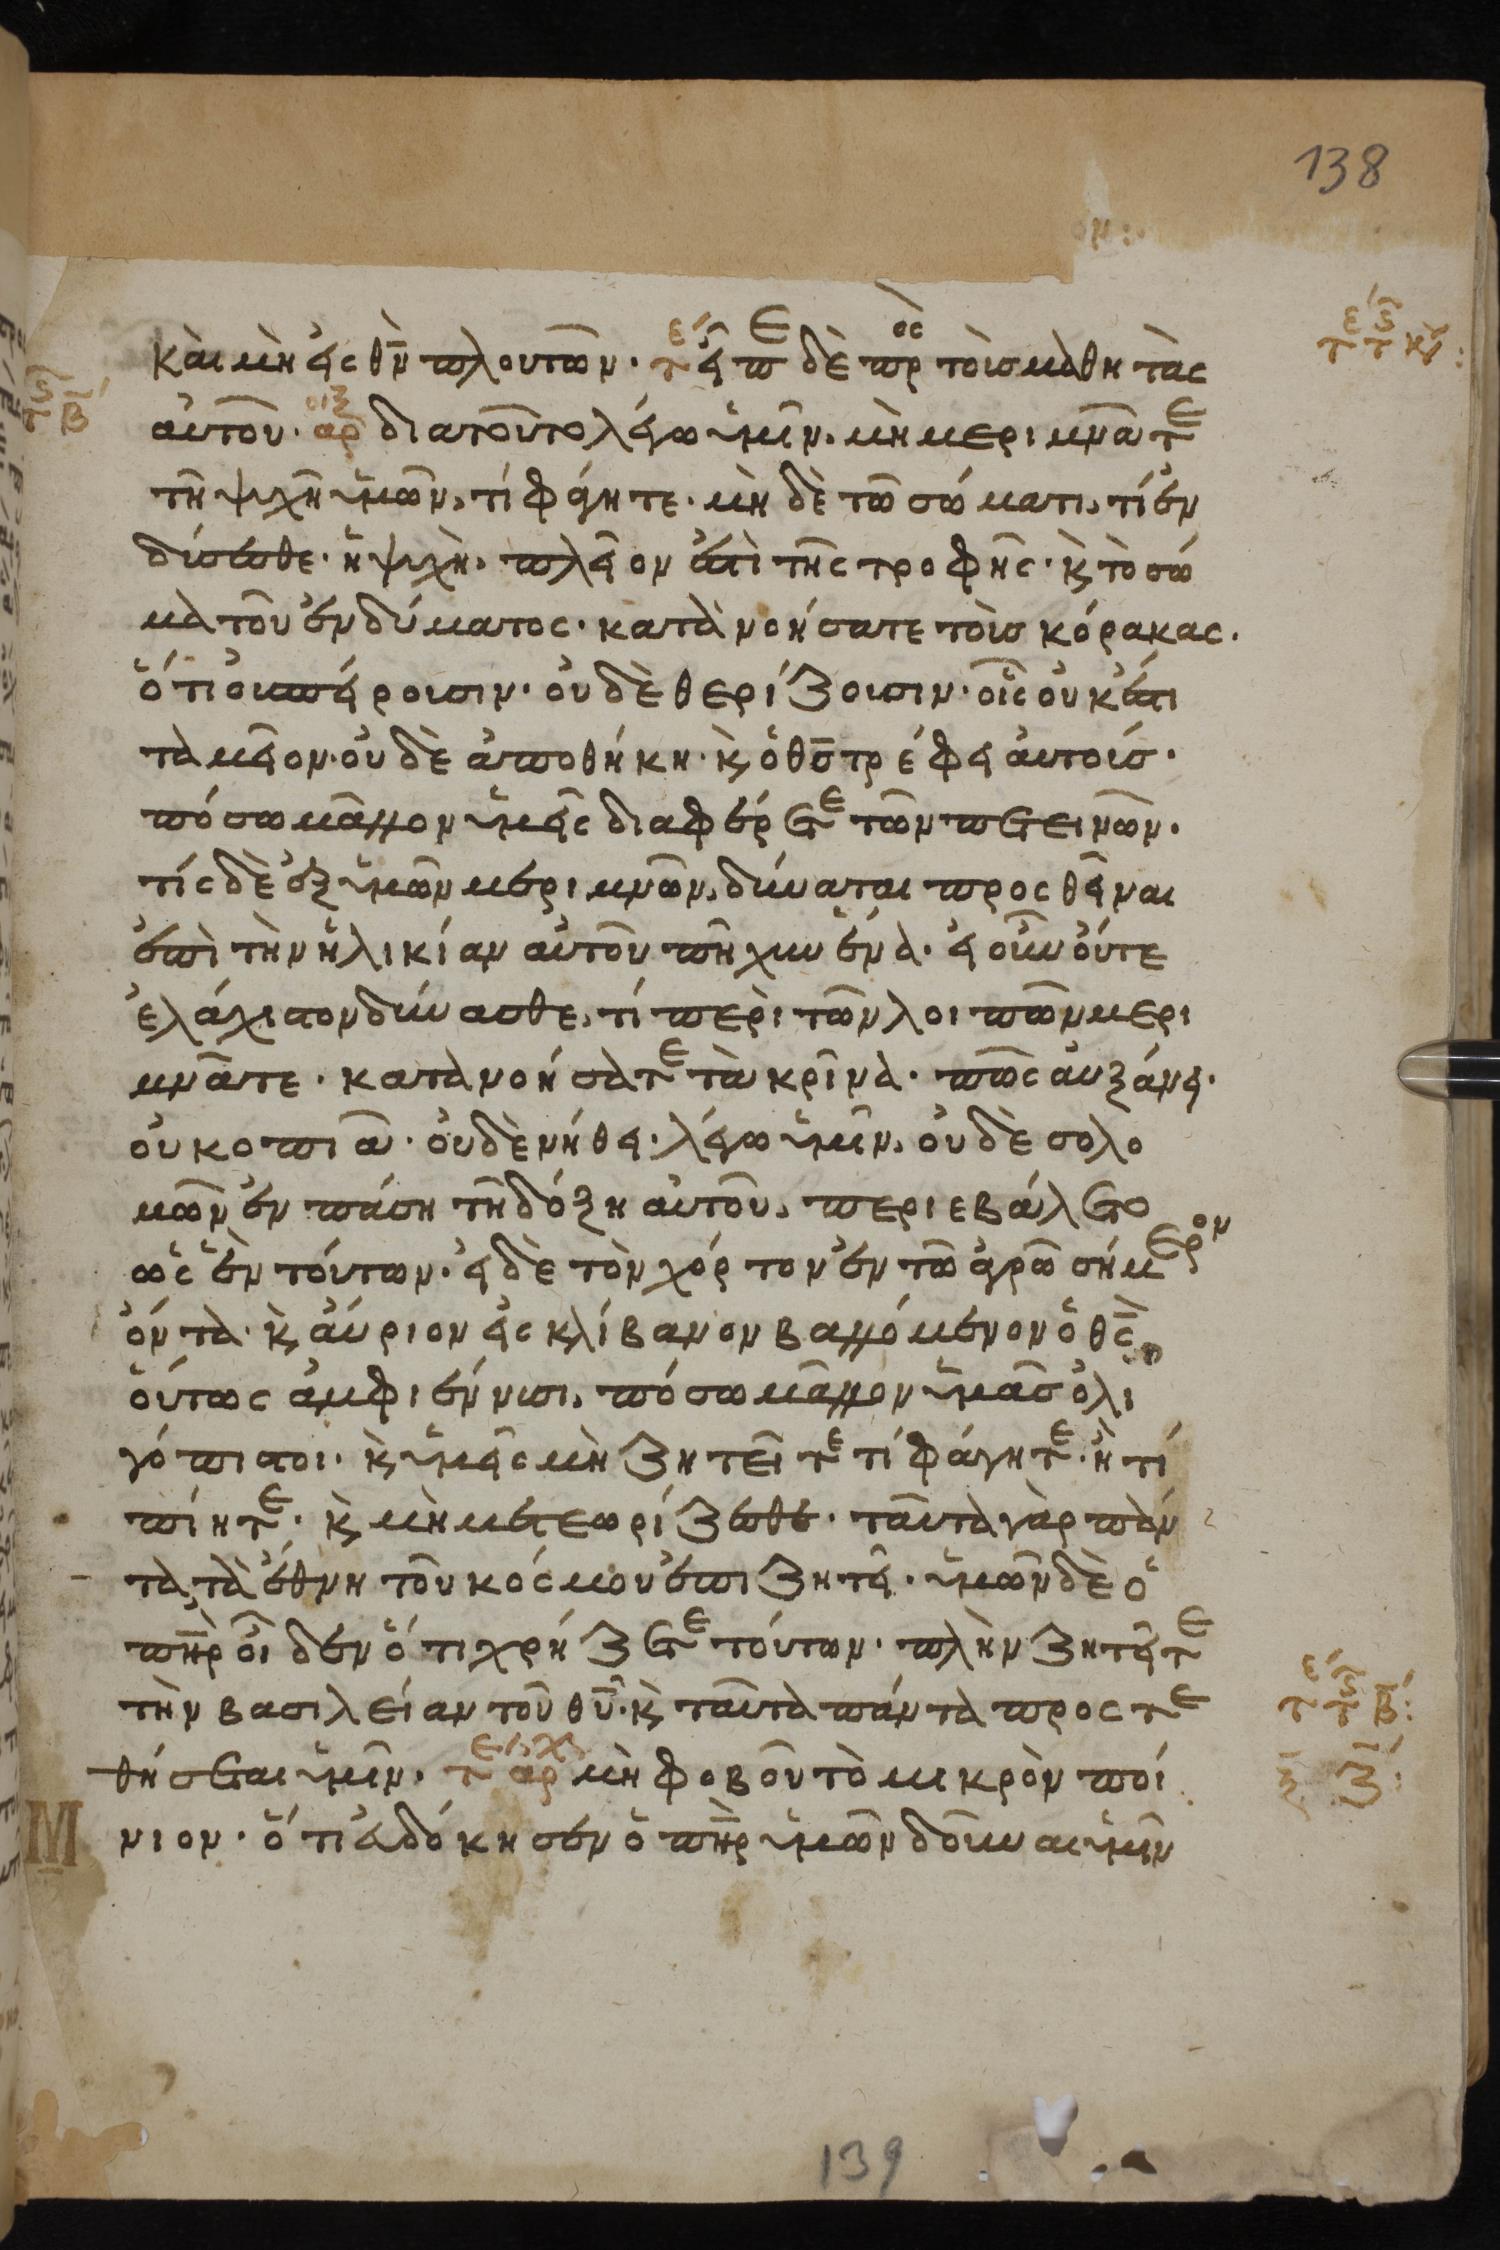 138
ομ:
ε´ ϛ
τ τ κυ:
καὶ μὴ εἰς θν̅ πλουτῶν· τ εἶπε δὲ πρὸς τοὺς μαθητὰς
ϛ τ β
αὐτοῦ· αρ διατοῦτο λέγω ὑμῖν. μὴ μεριμνᾶτε
τῆ ψυχῆ ὑμῶν, τί φάγητε· μὴ δὲ τῶ σώματι, τί ἐν
δύσεσθε· ἡ ψυχὴ πλεῖον ἐστὶ τῆς τροφῆς· κ̀ τὸ σώ
μα τοῦ ἐνδύματος· κατανοήσατε τοὺς κόρακας.
ὅτι οὐ σπείρουσιν· οὐδὲ θερίζουσιν· οἷς οὐκ ἔστι
ταμεῖον· οὐδὲ ἀποθήκη· κ̀ ὁ θς̅ τρέφει αὐτούς·
πόσω μᾶλλον ὑμεῖς διαφέρετε τῶν πετεινῶν·
τίς δὲ ἐξ ὑμῶν μεριμνῶν, δύναται προσθεῖναι
ἐπὶ τὴν ἡλικίαν αὐτοῦ πῆχυν ἕνα· εἰ οὖν οὔτε
ἐλάχιστον δύνασθε, τί περὶ τῶν λοιπῶν μερι
μνᾶτε· κατανοήσατε τὰ κρῖνα· πῶς αὐξάνει·
οὐ κοπιᾶ· οὐδὲ νήθει· λέγω ὑμῖν, οὐδὲ σολο
μῶν ἐν πάση τῆ δόξη αὐτοῦ, περιεβάλετο
ὡς ἓν τούτων· εἰ δὲ τὸν χόρτον ἐν τῶ ἀγρῶ σήμερον
ὄντα· κ̀ αὔριον εἰς κλίβανον βαλλόμενον ὁ θς̅
οὕτως ἀμφιέννυσι, πόσω μᾶλλον ὑμᾶς ὀλι
γόπιστοι· κ̀ ὑμεῖς μὴ ζητεῖτε τί φάγητε· ἢ τί
πίητε· κ̀ μὴ μετεωρίζεσθε· ταῦτα γὰρ πάν
τα τὰ ἔθνη τοῦ κόσμου ἐπιζητεῖ· ὑμῶν δὲ ὁ
πὴρ οἶδεν ὅτι χρήζετε τούτων· πλὴν ζητεῖτε
τὴν βασιλείαν τοῦ θυ̅· κ̀ ταῦτα πάντα προστε
ε´ ϛ
τ τ β:
θήσεται ὑμῖν· τ αρ μὴ φοβοῦ τὸ μικρὸν ποί
ξ ζ:
Μ
μνιον· ὅτι εὐδόκησεν ὁ πὴρ ὑμῶν δοῦναι ὑμῖν
139